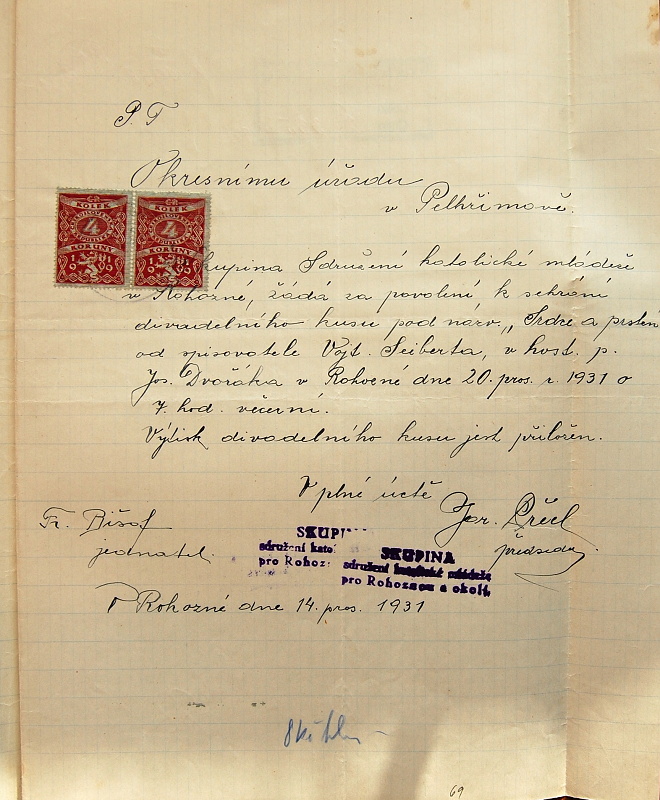 P. T
Okresnímu úřadu
v Pelhřimově.
KOLEK KOLEK
4 4
KORUNY KORUNY
Skupina Sdružení katolické mládeže
v Rohozné, žádá za povolení, k sehrání
divadelního kusu pod názv. „Srdce a prsten
od spisovatele Vojt. Seiberta, v host. p.
Jos. Dvořáka v Rohozné dne 20. pros. r. 1931 o
7. hod. večerní.
Výtisk divadelního kusu jest přiložen.
V plné úctě
Fr.
jednatel.
Jos.
předseda.
SKUPINA
sdružení kato
pro Rohoz
SKUPINA
sdružení katolické mládeže
pro Rohoznou a okolí,
V Rohozné dne 14. pros. 1931
69